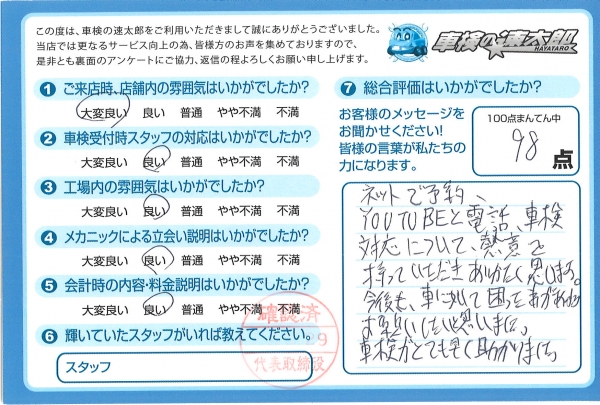 この度は、車検の速太郎をご利用いただきまして誠にありがとうございました。
当店では更なるサービス向上の為、皆様方のお声を集めておりますので、
是非とも裏面のアンケートにご協力、返信の程よろしくお願い申し上げます。
車検の速太郎
HAYATARO
1 ご来店時、店舗内の雰囲気はいかがでしたか?
大変良い 良い 普通 やや不満 不満
2 車検受付時スタッフの対応はいかがでしたか?
大変良い 良い 普通 やや不満 不満
3 工場内の雰囲気はいかがでしたか?
大変良い 良い 普通 やや不満 不満
4 メカニックによる立会い説明はいかがでしたか?
大変良い 良い 普通 やや不満 不満
5 会計時の内容・料金説明はいかがでしたか?
大変良い 良い 普通 やや不満 不満
6 輝いていたスタッフがいれば教えてください。
スタッフ
確認済
9
代表取締役
7 総合評価はいかがでしたか?
お客様のメッセージを
お聞かせください!
皆様の言葉が私たちの
力になります。
100点まんてん中
98 点
ネットで予約、
YOUTUBEと電話、車検
対応について、熱意を
持っていただきありがたく思います。
今後も、車に対して困ったことがあれば
お願いしたいと思いました。
車検がとても早く助かりました。